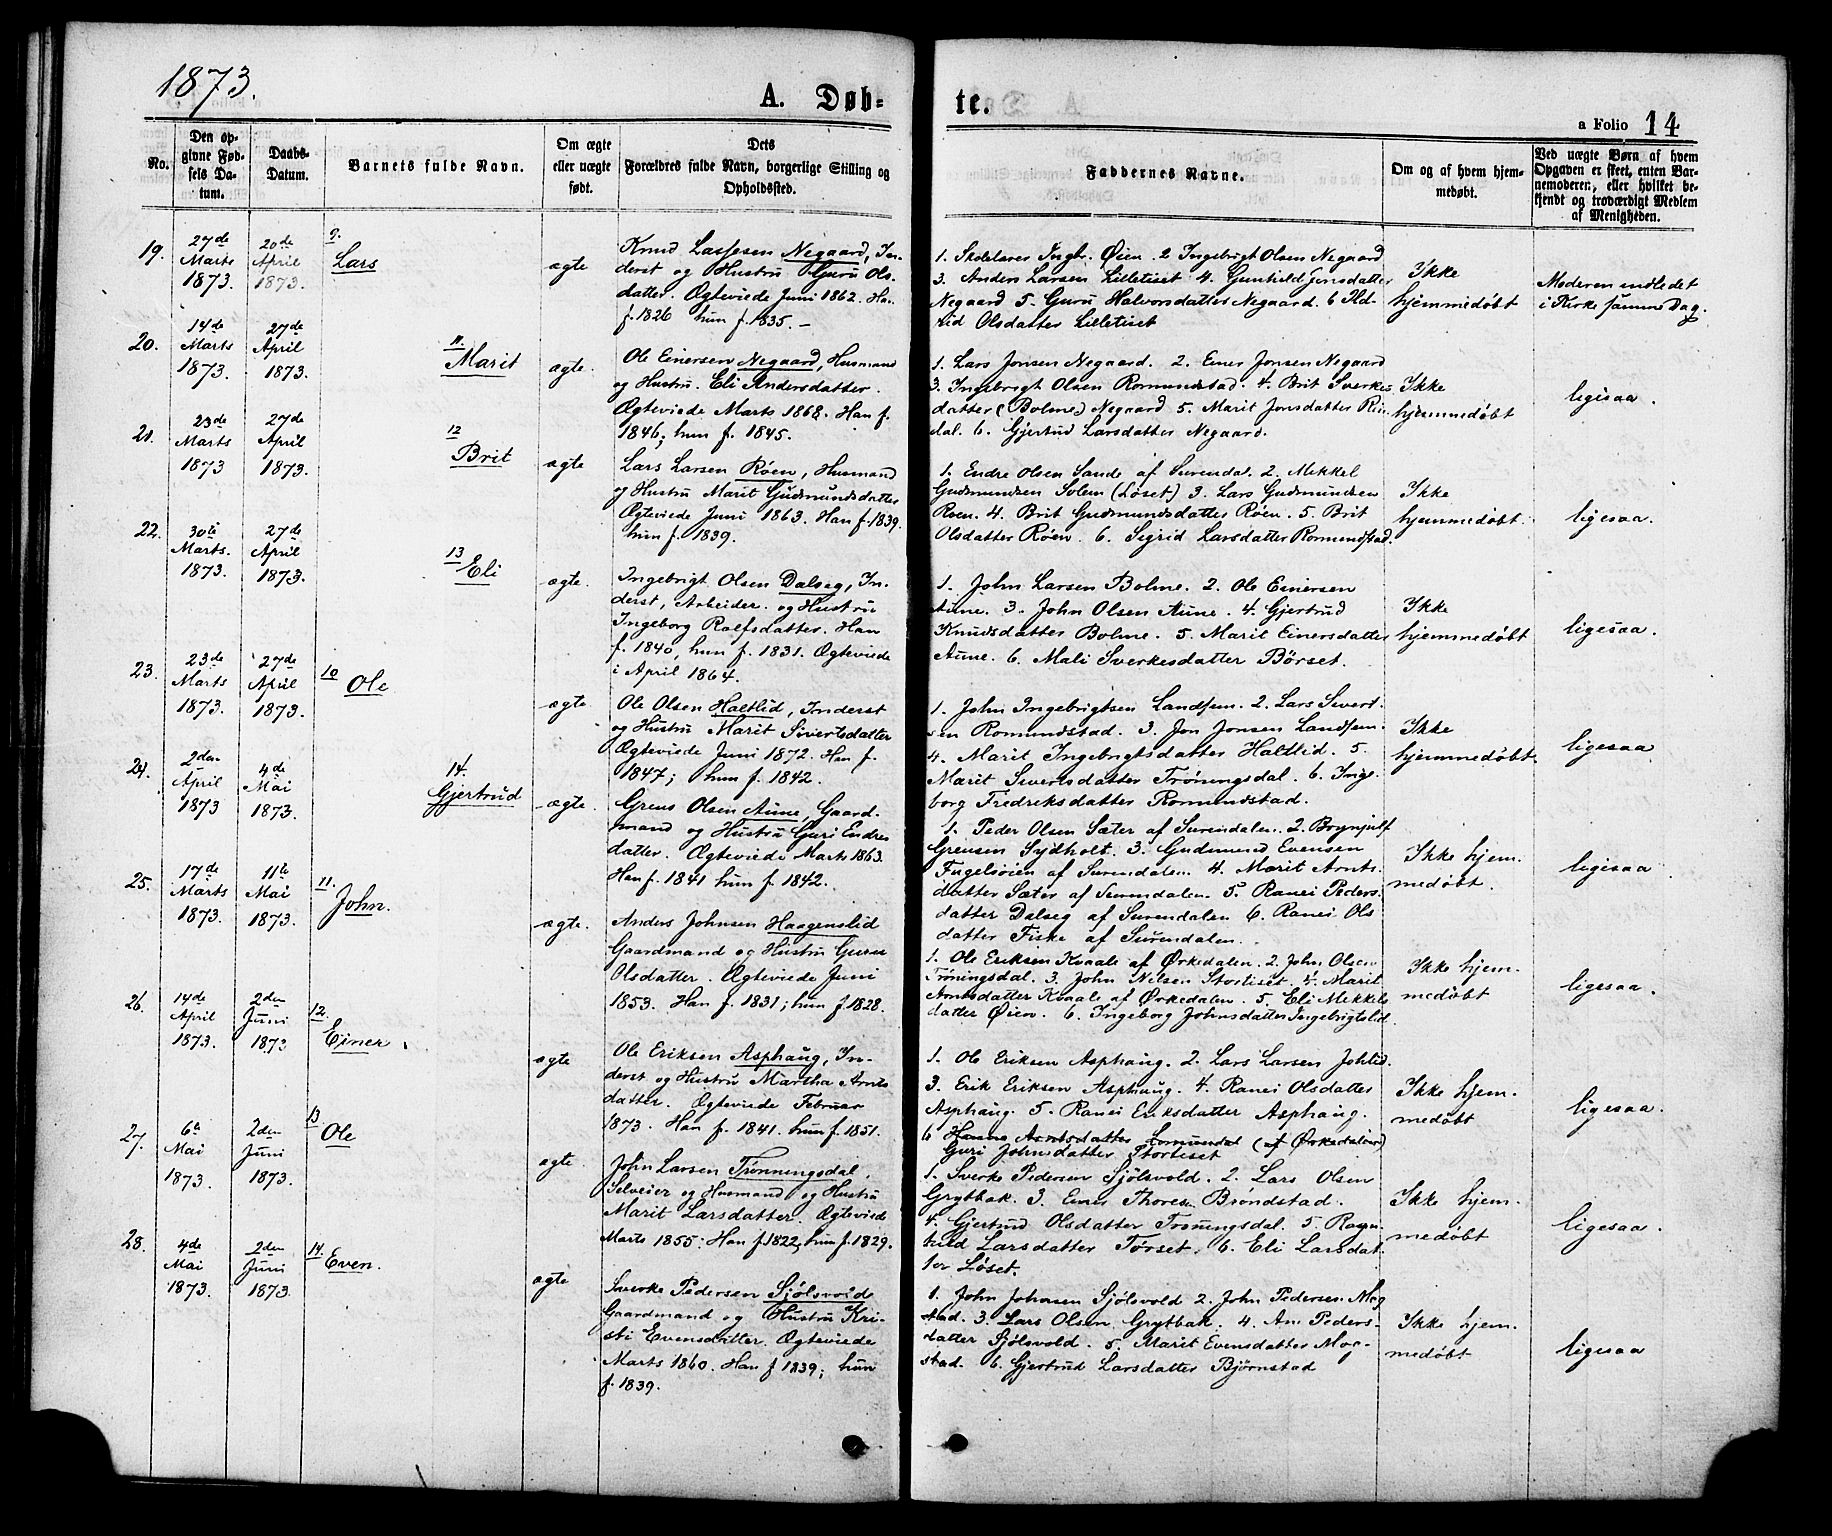 1873.
A. Døb-
te.
a Folio 14
No.
Den op-
givne Fød-
sels Da-
tum.
Daabs-
Datum.
Barnets fulde Navn.
Om ægte
eller uægte
født.
Dets
Forældres fulde Navn, borgerlige Stilling og
Opholdssted.
Faddernes Navne.
Om og af hvem hjem-
medøbt.
Ved uægte Børn af hvem
Opgaven er skeet, enten Bar-
nemoderen, eller hvilket be-
kjendt og troværdigt Medlem
af Menigheden.
19.
27de
Marts
1873.
20de
April
1873.
9.
Lars
ægte
Knud Lassesen Negaard, In-
derst og Hustru Guru Ols-
datter. Ægteviede Juni 1862. Han
f. 1826 hun f. 1835. –
1. Skolelærer Ingbr. Øien. 2 Ingebrigt Olsen Negaard
3. Anders Larsen Lilletiset 4. Gunhild Jensdatter
Negaard 5. Guru Halvorsdatter Negaard. 6 Ild-
rid Olsdatter Lilletiset
Ikke
hjemmedøbt
Moderen indledet
i Kirke samme Dag.
20.
14de
Marts
1873.
27de
April
1873.
11.
Marit
ægte.
Ole Einersen Negaard, Husmand
og Hustru. Eli Andersdatter.
Ægteviede Marts 1868. Han f.
1846; hun f. 1845.
1. Lars Jonsen Negaard. 2. Einer Jonsen Negaard
3. Ingebrigt Olsen Romundstad. 4. Brit Sverkes-
datter (Bolme) Negaard 5. Marit Jonsdatter Rin-
dal. 6. Gjertrud Larsdatter Negaard.
Ikke
hjemmedøbt
ligesaa.
21.
23de
Marts
1873
27de
April
1873.
12
Brit
ægte
Lars Larsen Røen, Husmand
og Hustru Marit Gudmundsdatter
Ægteviede Juni 1863. Han f. 1839.
hun f. 1839.
1. Endre Olsen Sande af Surendal. 2. Mekkel
Gudmundsen Solem (Løset) 3. Lars Gudmundsen
Røen. 4. Brit Gudmundsdatter Røen. 5. Brit
Olsdatter Røen. 6. Sigrid Larsdatter Romundstad.
Ikke
hjemmedøbt.
ligesaa.
22.
30te
Marts.
1873.
27de
April
1873.
13
Eli
ægte.
Ingebrigt Olsen Dalseg, In-
derst, Arbeider. og Hustru
Ingeborg Rolfsdatter. Han
f. 1840, hun f. 1831. Ægteviede
i April 1864.
1. John Larsen Bolme. 2. Ole Einersen
Aune. 3. John Olsen Aune. 4. Gjertrud
Knudsdatter Bolme. 5. Marit Einersdatter
Aune. 6. Mali Sverkesdatter Børset.
Ikke
hjemmedøbt
ligesaa.
23.
23de
Marts
1873.
27de
April
1873.
10
Ole
ægte.
Ole Olsen Haltlid, Inderst
og Hustru Marit Sivertsdatter
Ægteviede Juni 1872. Han f.
1847; hun f. 1842.
1. John Ingebrigtsen Landsem. 2. Lars Sivert-
sen Romundstad. 3. Jon Jonsen Landsem
4. Marit Ingebrigtsdatter Haltlid. 5.
Marit Sivertsdatter Trøningsdal. 6. Inge-
borg Fredriksdatter Romundstad.
Ikke
hjemmedøbt.
ligesaa
24.
2den
April
1873
4de
Mai
1873.
14.
Gjertrud
ægte.
Greus Olsen Aune, Gaard-
mand og Hustru Guri Endres
datter. Ægteviede Marts 1863.
Han f. 1841 hun f. 1842.
1. Peder Olsen Sæter af Surendalen. 2. Brynjulf
Greusen Sydholt. 3. Gudmund Evensen
Fugelsøien af Surendalen. 4. Marit Arnts-
datter Sæter af Surendalen. 5. Ranei Peders-
datter Dalseg af Surendalen 6. Ranei Ols
datter Fiske af Surendalen.
Ikke hjem-
medøbt.
ligesaa.
25.
17de
Marts
1873.
11te
Mai
1873.
11.
John.
ægte.
Anders Johnsen Haagenslid
Gaardmand og Hustru Guru
Olsdatter. Ægteviede Juni
1853. Han f. 1831; hun f. 1828.
1. Ole Eriksen Kvaale af Ørkedalen. 2. John Olsen
Trøningsdal. 3. John Nilsen Stortiset. 4. Marit
Arntsdatter Kvaale af Ørkedalen. 5. Eli Mekkels
datter Øien. 6. Ingeborg Johnsdatter Ingebrigtslid.
Ikke hjem-
medøbt
ligesaa.
26.
14de
April
1873.
2den
Juni
1873
12.
Einer.
ægte
Ole Eriksen Asphaug, In-
derst og Hustru Martha Arnts
datter. Ægteviede Februar
1873. Han f. 1841. hun f. 1851.
1. Ole Eriksen Asphaug. 2. Lars Larsen Jolilid.
3. Erik Eriksen Asphaug. 4. Ranei Olsdatter
Asphaug. 5. Ranei Eriksdatter Asphaug.
6 Hanna Arntsdatter Lomundal (af Ørkedalen)
Guri Johnsdatter Stortiset
Ikke hjem-
medøbt
ligesaa.
27.
6te
Mai
1873.
2den
Juni
1873.
13
Ole
ægte.
John Larsen Trønningsdal,
Selveier og Husmand og Hustru
Marit Larsdatter. Ægteviede
Marts 1855. Han f. 1822, hun f. 1829.
1. Sverke Pedersen Sjølsvold. 2. Lars Olsen
Grytbak. 3. Einer Thoresen Brøndstad.
4. Gjertrud Olsdatter Trøningsdal. 5. Ragn-
hild Larsdatter Tørset. 6. Eli Larsdat-
ter Løset.
Ikke hjem-
medøbt
ligesaa.
28.
4de
Mai
1873.
2den
Juni
1873.
14.
Even.
ægte
Sverke Pedersen Sjølsvold
Gaardmand og Hustru Kri-
sti Evensdatter. Ægteviede
Marts 1860. Han f 1839; hun
f. 1839.
1. John Johnsen Sjølsvold 2. John Pedersen Mog
stad. 3. Lars Olsen Grytbak. 4. Ane Peders-
datter Sjølsvold. 5. Marit Evensdatter Mog-
stad. 6. Gjertrud Larsdatter Bjørnstad
Ikke hjem-
medøbt
ligesaa